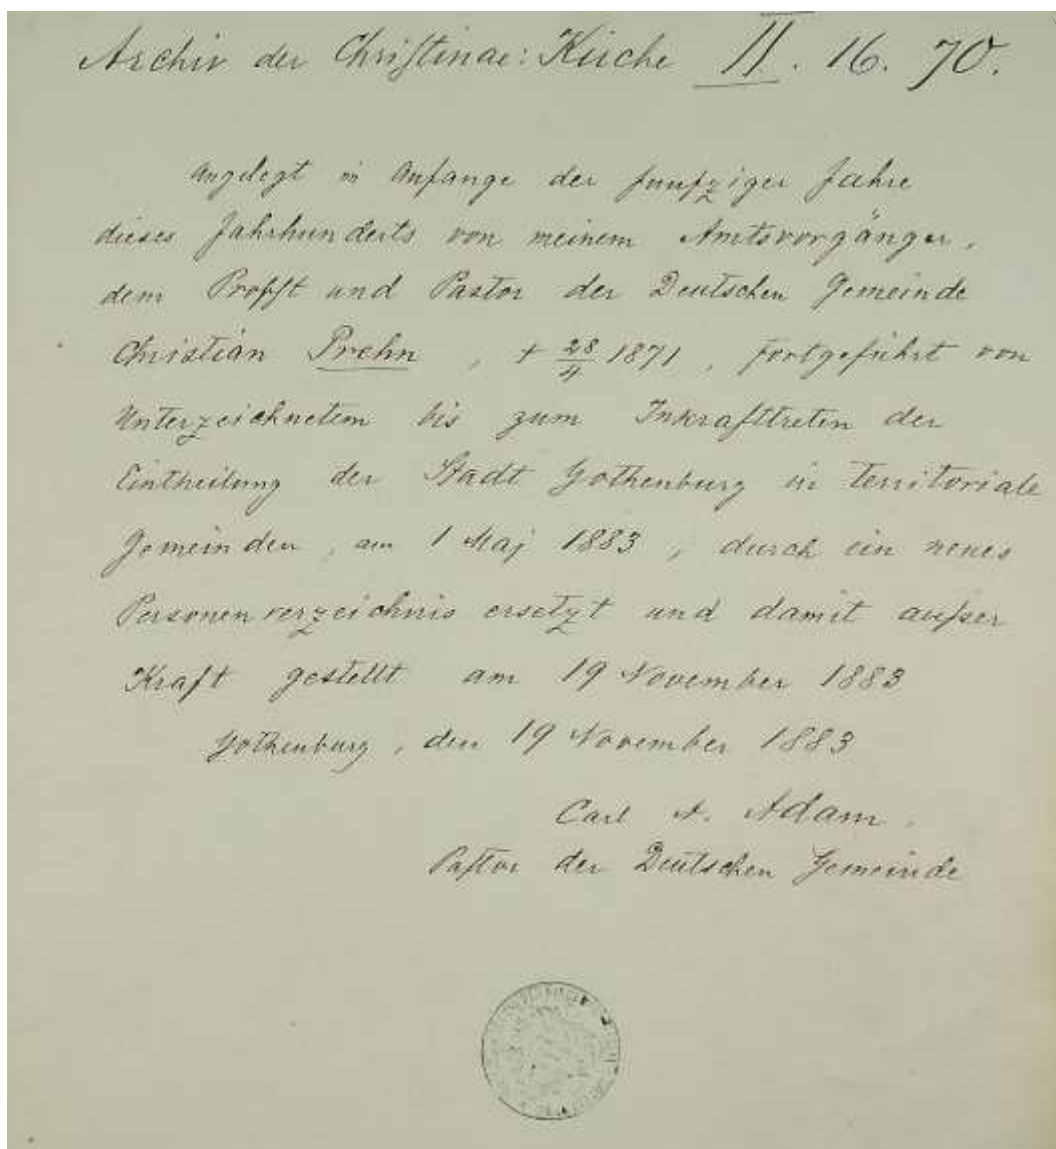 Archiv der Christinae: Kirche II. 16. 70.
Angelegt in Anfange der funfziger Jahre
dieses Jahrhunderts von meinem Amtsvorgänger,
dem Propst und Pastor der Deutschen Gemeinde
Christian Prehn, + 28/4 1871, fortgeführt von
Unterzeichnetem bis zum Inkrafttreten der
Eintheilung der Stadt Gothenburg in territoriale
Gemeinden, am 1 Maj 1883, durch ein neues
Personenverzeichnis ersetzt und damit außer
Kraft gestellt am 19 November 1883
Gothenburg, den 19 November 1883
Carl A. Adam.
Pastor der Deutschen Gemeinde